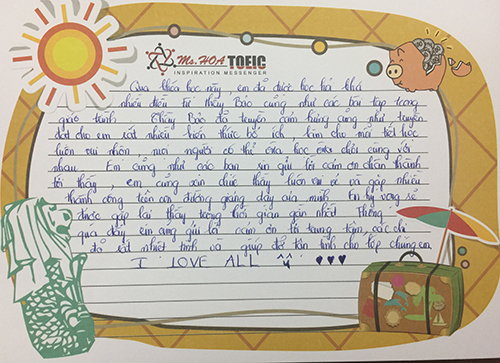 Ms. HOA TOEIC
INSPIRATION MESSENGER
Qua khóa học này, em đã được học hỏi khá
nhiều điều từ thầy Bảo cũng như các bài tập trong
giáo trình. Thầy Bảo đã truyền cảm hứng cũng như truyền
đạt cho em rất nhiều kiến thức bổ ích, làm cho mỗi tiết học
luôn vui nhộn, mọi người có thể vừa học vừa chơi cùng với
nhau. Em cũng như các bạn xin gửi lời cảm ơn chân thành
tới thầy, em cũng xin chúc thầy luôn vui vẻ và gặp nhiều
thành công trên con đường giảng dạy của mình. Em hy vọng sẽ
được gặp lại thầy trong thời gian gần nhất. Thông
qua đây em cũng gửi lời cảm ơn tới trung tâm, các chị
đã rất nhiệt tình và giúp đỡ tận tình cho lớp chúng em
I LOVE ALL ^^ ♥♥♥